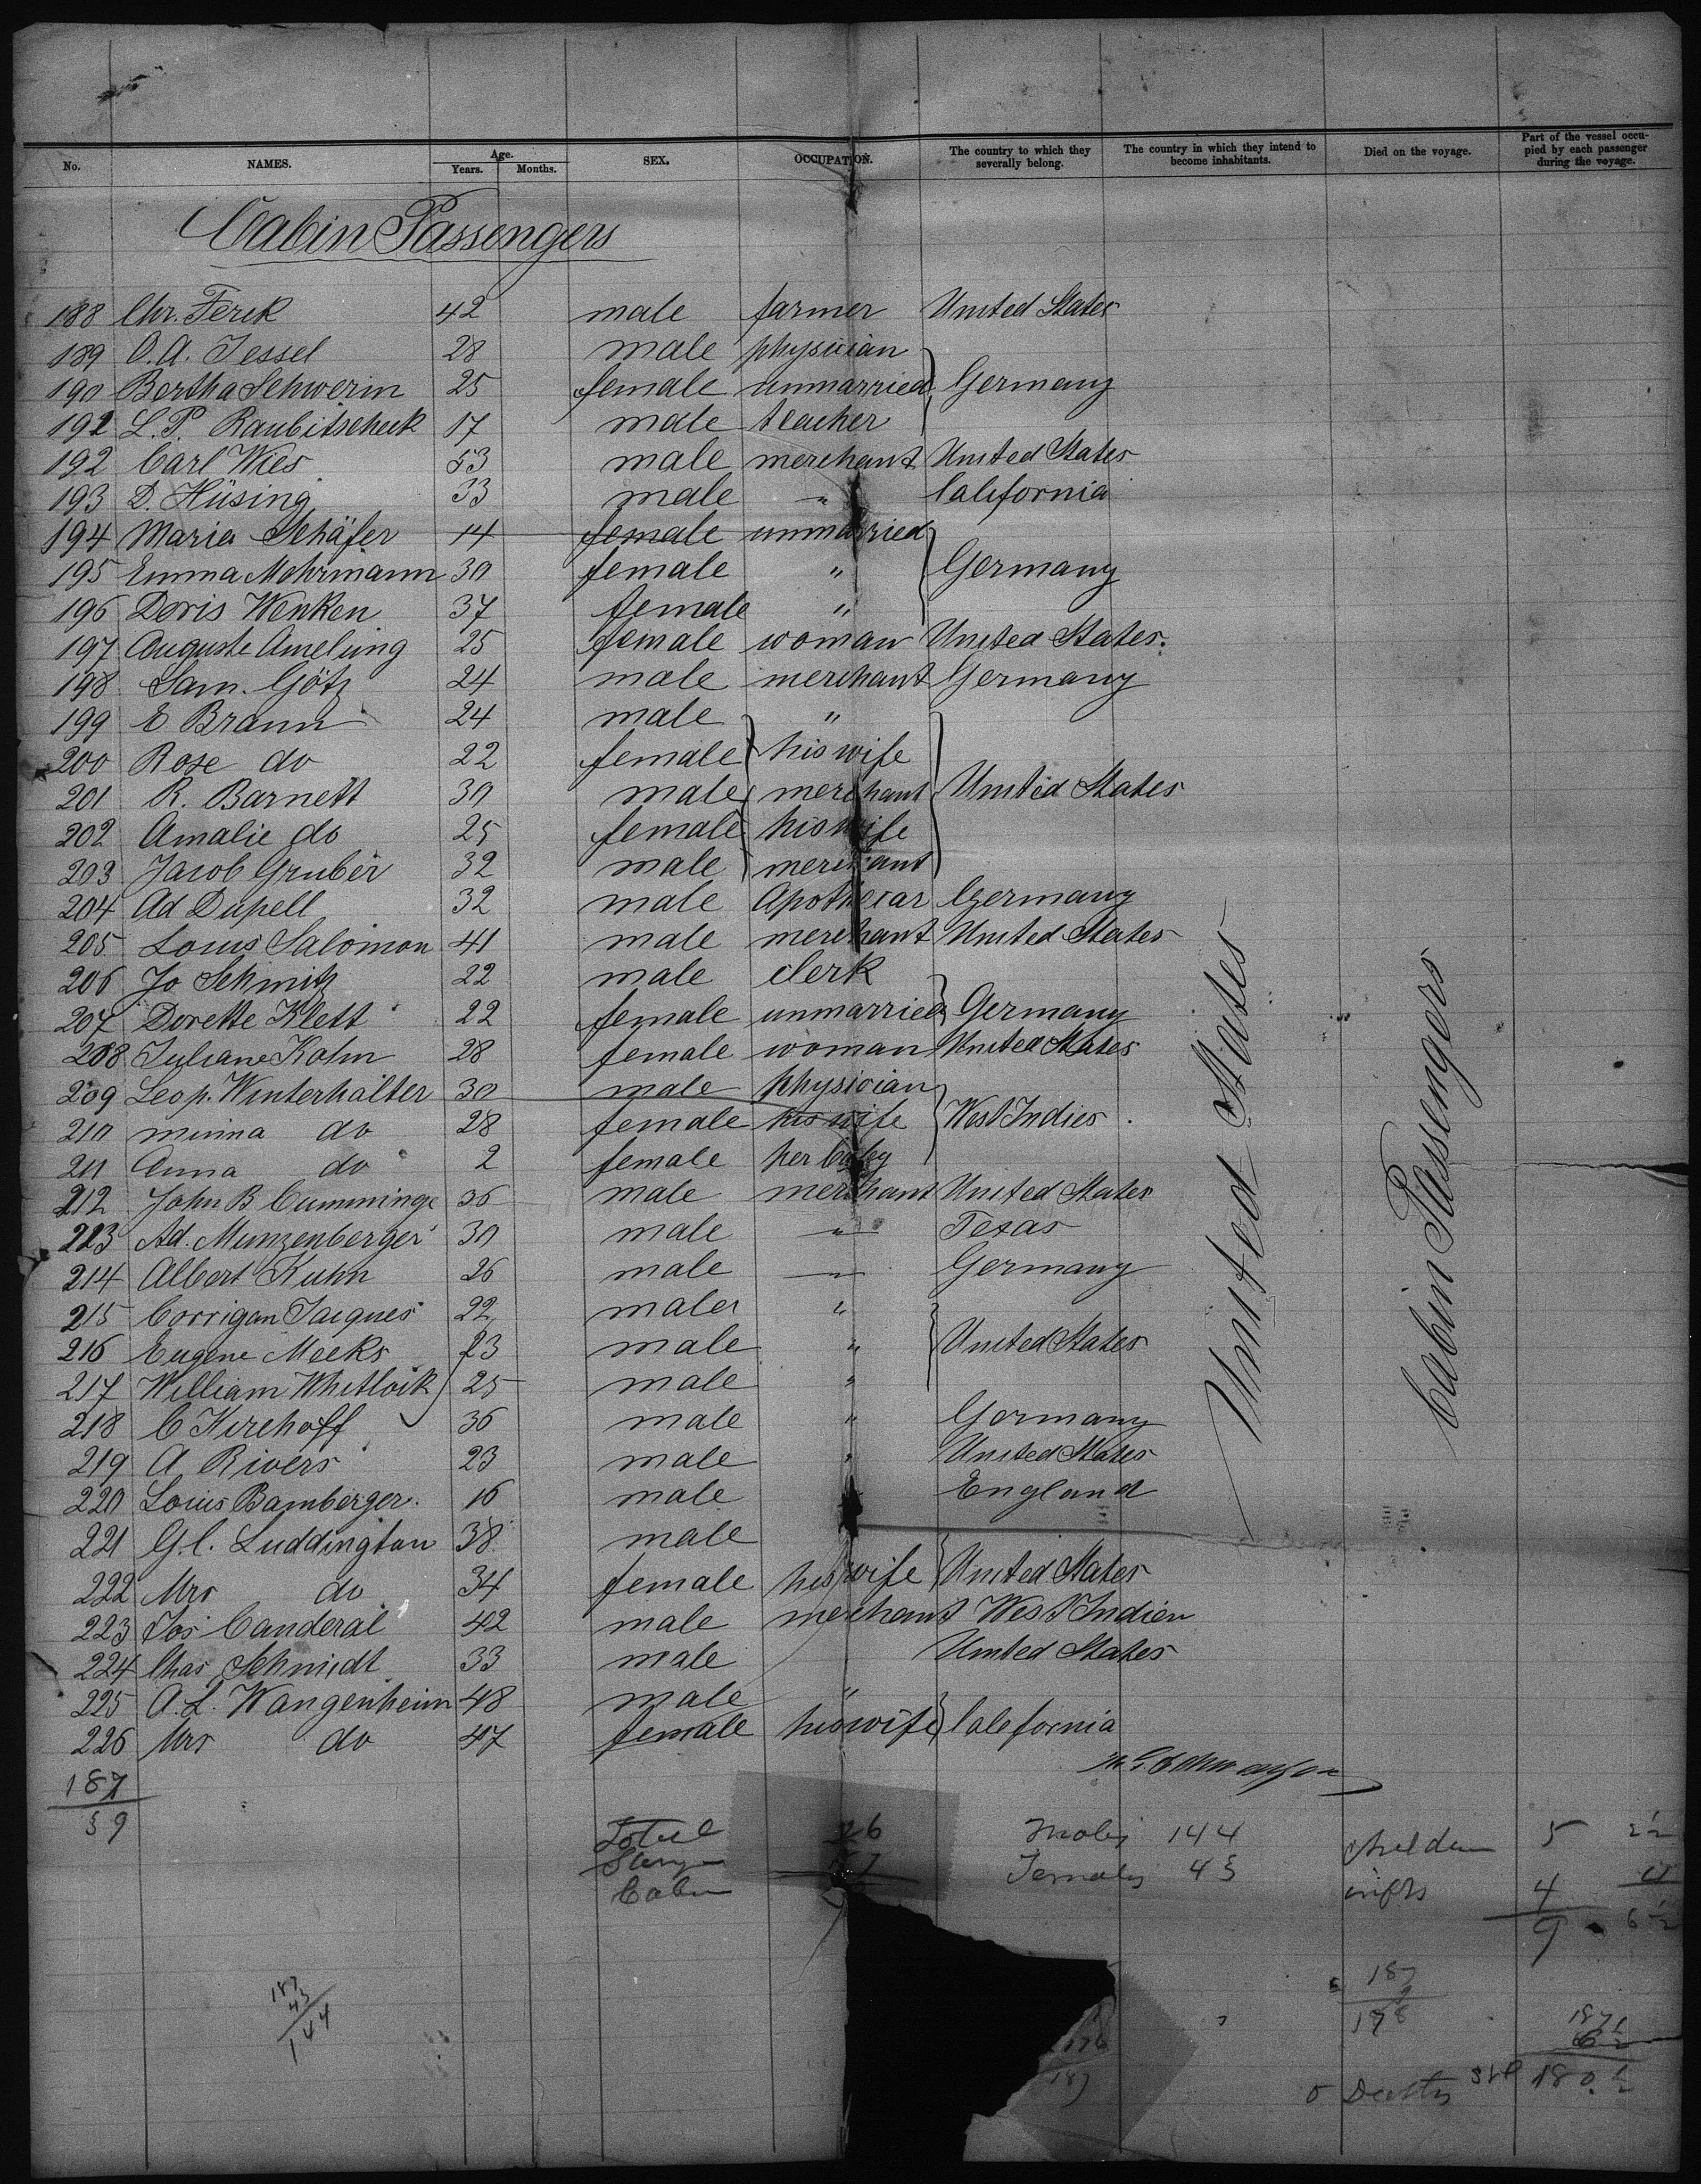 No. NAMES. Age. Years. Months. SEX. OCCUPATION. The country to which they severally belong. The country in which they intend to become inhabitants. Died on the voyage. Part of the vessel occupied by each passenger during the voyage.
Cabin Passengers
188 Chr. Ferek 42 male farmer United States
189 O. A. Jessel 28 male physician
190 Bertha Schwerin 25 female unmarried Germany
191 L. P. Raubitscheck 17 male teacher
192 Carl Wies 53 male merchant United States
193 D. Hüsing 33 male " California
194 Maria Schäfer 14 female unmarried
195 Emma Mohrmann 30 female " Germany
196 Doris Wenken 37 female "
197 Auguste Amelung 25 female woman United States.
198 Sam. Götz 24 male merchant Germany
199 E Braun 24 male "
200 Rose do 22 female his wife
201 R. Barnett 30 male merchant United States
202 Amalie do 25 female his wife
203 Jacob Gruber 32 male merchant
204 Ad Dupell 32 male Apothecar Germany
205 Louis Salomon 41 male merchant United States
206 Jo Schmitz 22 male clerk
207 Dorette Klett 22 female unmarried Germany
208 Juliane Kohn 28 female woman United States
209 Leop. Winterhalter 30 male physician
210 minna do 28 female his wife West Indies
211 Anna do 2 female her baby
212 John B Cumminge 36 male merchant United States
213 Ad. Munzenberger 30 male " Texas
214 Albert Kuhn 26 male " Germany
215 Corrigan Jacques 22 male "
216 Eugene Meeks 23 male " United States
217 William Whitlock 25 male "
218 C Kirchoff 36 male " Germany
219 A Rivers 23 male " United States
220 Louis Bamberger. 16 male England
221 G. C. Luddington 38 male
222 Mrs do 34 female his wife United States
223 Jos Canderal 42 male merchant West Indien
224 Chas Schmidt 33 male United States
225 A. L. Wangenheim 48 male "
226 Mrs do 47 female his wife California
United States
Cabin Passengers
187
39
Total 26
Cabin
Males 144
Females 43
children 5
infts 4
9
6 1/2
187
9
178
187
43
144
187
0 Deaths
180 1/2